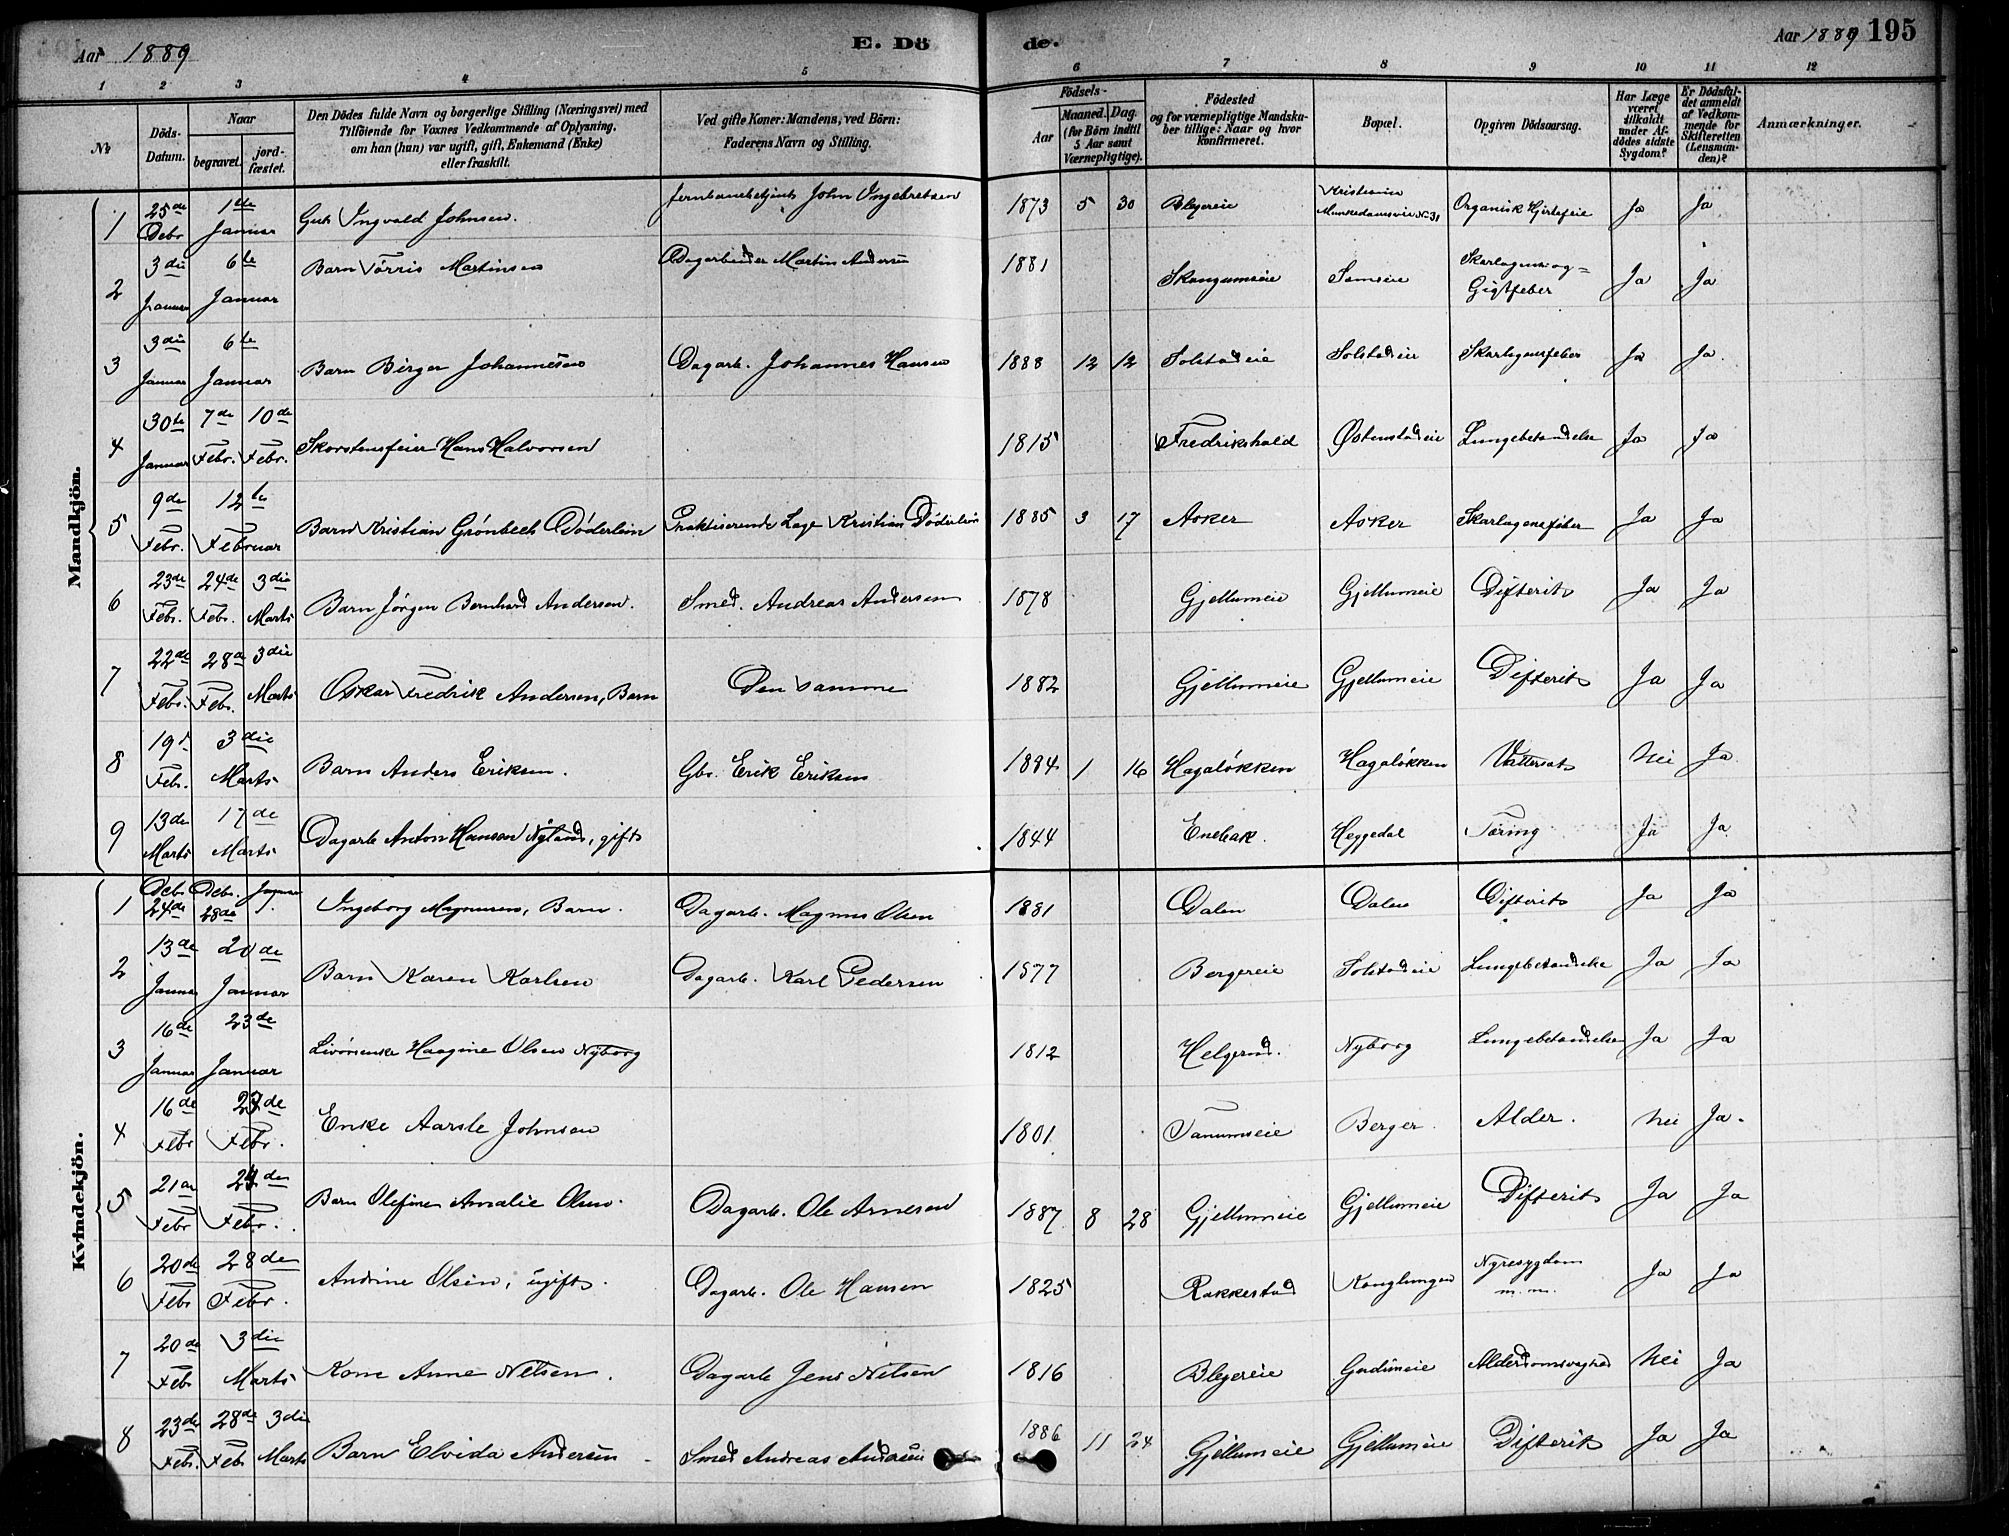 Aar 1889
E. Dö
de.
Aar 1889 195
1 2 3 4 5 6 7 8 9 10 11 12
No
Döds-
Datum.
Naar
begravet.
jord-
fæstet.
Den Dödes fulde Navn og borgerlige Stilling (Næringsvei) med
Tilföiende for Voxnes Vedkommende af Oplysning,
om han (hun) var ugift, gift, Enkemand (Enke)
eller fraskilt.
Ved gifte Koner: Mandens, ved Börn:
Faderens Navn og Stilling.
Födsels-
Aar
Maaned. Dag.
(for Börn indtil
5 Aar samt
Værnepligtige).
Födested
og for værnepligtige Mandska-
ber tillige: Naar og hvor
konfirmeret.
Bopæl.
Opgiven Dödsaarsag.
Har Læge
været
tilkaldt
under Af-
dödes sidste
Sygdom?
Er Dödsfal-
det anmeldt
af Vedkom-
mende for
Skifteretten
(Lensman-
den)?
Anmærkninger.
Mandkjön.
1 25de Debr 1ste Januar Gut Ingvald Johnsen. Jernbanebetjent John Ingebretsen 1873 5 30 Blegereie Kristiania Munkedamsvei No 31 Organisk Hjertefeil Ja Ja
2 3die Januar 6te Januar Barn Tørris Martinsen Dagarbeider Martin Andersen 1881 Skangumseie Semseie Skarlagens og Gigtfeber Ja Ja
3 3die Januar 6te Januar Barn Birger Johannesen Dagarb. Johannes Hansen 1888 12 12 Solstadeie Solstadeie Skarlagensfeber Ja Ja
4 30te Januar 7de Febr. 10de Febr. Skorstensfeier Hans Halvorsen 1815 Fredrikshald Østenstadeie Lungebetændelse Ja Ja
5 9de Febr. 12te Februar Barn Kristian Grønbech Döderlein Praktiserende Læge Kristian Döderlein 1885 3 17 Asker Asker Skarlagensfeber Ja Ja
6 23de Febr. 24de Febr. 3die Marts Barn Jörgen Bernhard Andersen. Smed. Andreas Andersen 1878 Gjellumeie Gjellumeie Difterit Ja Ja
7 22de Febr. 28de Febr. 3die Marts Oskar Fredrik Andersen, Barn Den samme 1882 Gjellumeie Gjellumeie Difterit Ja Ja
8 19d Febr. 3die Marts Barn Anders Eriksen. Gbr. Erik Eriksen 1884 1 16 Hagaløkken Hagaløkken Vattersot Nei Ja
9 13de Marts 17de Marts Dagarb Anton Hansen Nyland, gift 1844 Enebak. Heggedal Tæring Ja Ja
Kvindekjön.
1 Debr 24de Debr. 28de Januar Ingeborg Magnusen, Barn. Dagarb. Magnus Olsen 1881 Dalen Dalen Difterit Ja Ja
2 13de Januar 20de Januar Barn Karen Karlsen Dagarb. Karl Pedersen 1877 Bergereie Solstadeie Lungebetændelse Ja Ja
3 16de Januar 23de Januar Haagine Olsen Nyborg 1812 Helgerud. Nyborg Lungebetændelse Ja Ja
4 16de Febr Febr. Enke Aarsle Johnsen 1801 Tanumseie Berger. Alder. Nei Ja.
5 21de Febr Febr. Barn Olefine Amalie Olsen. Dagarb. Ole Arnesen 1887 8 28 Gjellumeie Gjellumeie Difterit Ja Ja
6 20de Febr 28de Febr. Andrine Olsen, ugift. Dagarb. Ole Hansen 1825 Rakkestad Konglungen Nyresygdom m.m. Ja Ja
7 20de Febr 3die Marts Kone Anne Nilsen. Dagarb Jens Nilsen 1816 Blegereie Gudimeie Alderdomssvaghed Nei Ja
8 23de Febr. 28de Febr 3die Marts Barn Elvida Andersen Smed Andreas Andersen 1886 11 24 Gjellumeie Gjellumeie Difterit Ja Ja